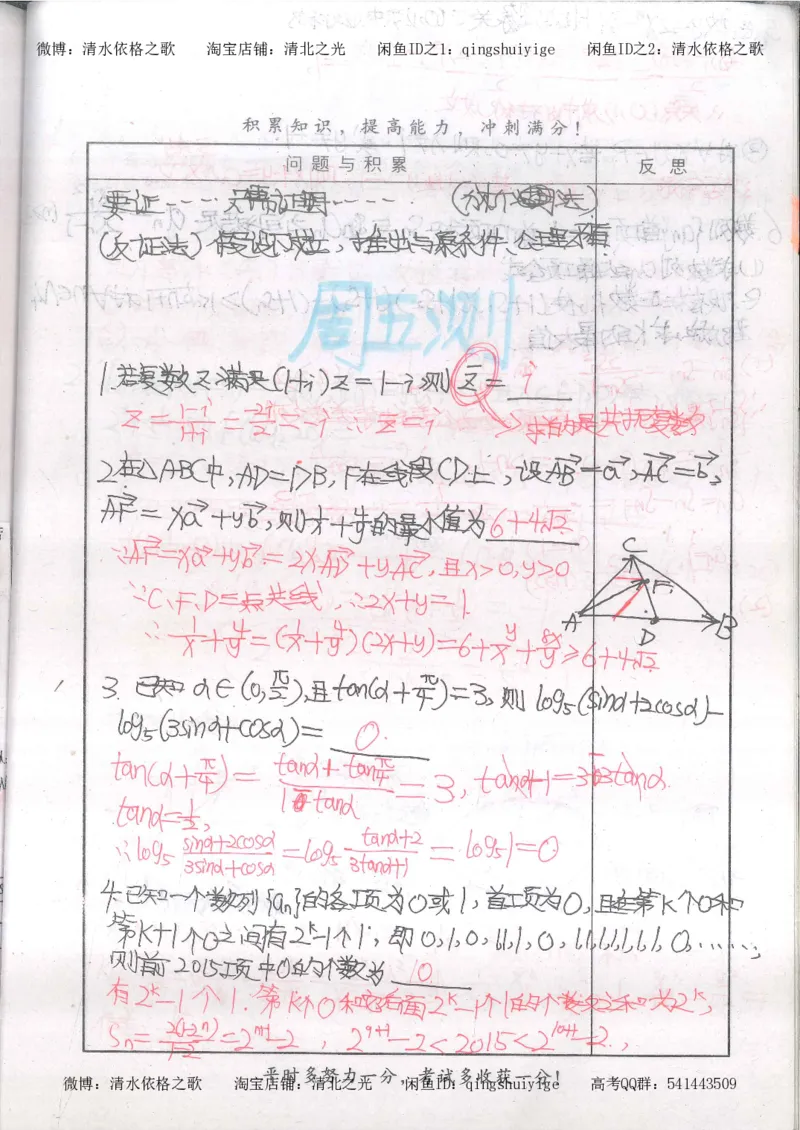 微博：清水依格之歌 淘宝店铺：清北之光 闲鱼ID之1：qingshuiyige 闲鱼ID之2：清水依格之歌
积累知识，提高能力，冲刺满分！
问题与积累 反思
要证---- 只需证明-----. (分析法)
(反证法) 假设不成立，推出与原条件、公理矛盾
周五测
1.若复数z满足(1+i)z=1-i,则z̄= i
z=(1-i)/(1+i)=(-2i)/2=-i ∴z̄=i
求的是共轭复数
2.在△ABC中,AD=DB,F在线段CD上,设AB→=a→,AC→=b→,
AF→=xa→+yb→,则1/x+4/y的最小值为 6+4√2
∵AF→=xa→+yb→=2xAD→+yAC→,且x>0,y>0
∵C、F、D三点共线,∴2x+y=1.
∴1/x+4/y=(1/x+4/y)(2x+y)=6+y/x+8x/y≥6+4√2
C
F
A
D
B
3.已知α∈(0,π/2),且tan(α+π/4)=3,则log₅(sinα+2cosα)-
log₅(3sinα+cosα)= 0.
tan(α+π/4)= =3, tanα+1=3-3tanα.
tanα=1/2,
∴log₅(sinα+2cosα)/(3sinα+cosα)=log₅(tanα+2)/(3tanα+1)=log₅1=0
4.已知一个数列{aₙ}的各项为0或1,首项为0,且在第k个0和
第k+1个0之间有2ᵏ-1个1,即0,1,0,1,1,1,0,1,1,1,1,1,1,1,0,……,
则前2015项中0的个数为 10
有2ᵏ-1个1.第k个0和它后面2ᵏ-1个1的个数之和为2ᵏ,
Sₙ=2(1-2ⁿ)/(1-2)=2ⁿ⁺¹-2, 2⁹⁺¹-2<2015<2¹⁰⁺¹-2.,
平时多努力一分，考试多收获一分！
微博：清水依格之歌 淘宝店铺：清北之光 闲鱼ID：qingshuiyige 高考QQ群：541443509